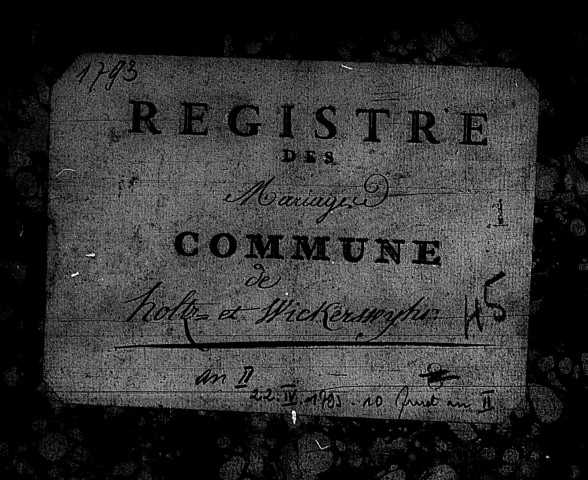 1793
REGISTRE
DES
Mariages
1
COMMUNE
de
holtz= et Wickerswyhr
45
an II
22. IV. 1793. 10 fruct an II